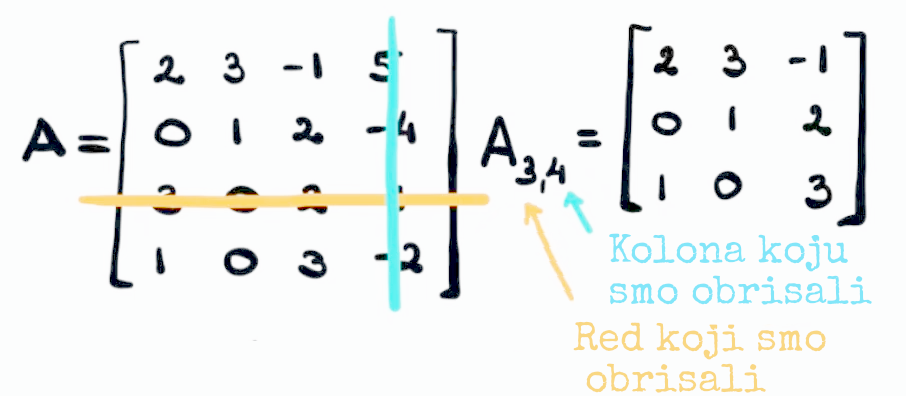 2 3 -1 5
0 1 2 -4
A =
2 0 2
1 0 3 -2
A3,4 =
2 3 -1
0 1 2
1 0 3
Kolona koju
smo obrisali
Red koji smo
obrisali